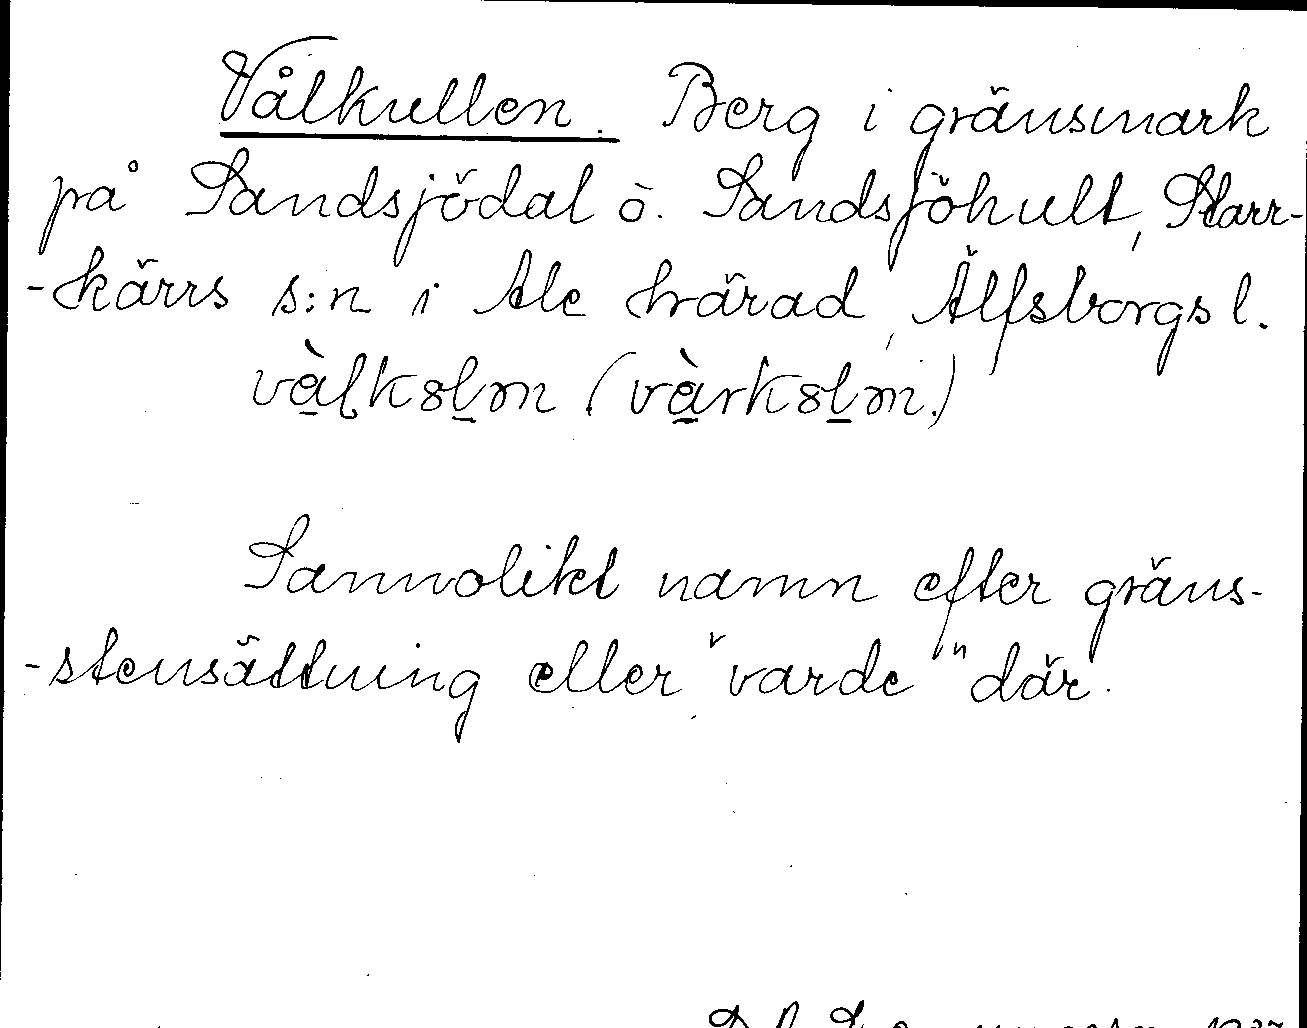 Vålkullen. Berg i gränsmark
på Sandsjödal o. Sandsjöhult, Starr-
-kärrs s:n i Ale härad, Älfsborgs l.
vàlkslm (vàrkslm.)
Sannolikt namn efter gräns-
-stensättning eller "varde" där.